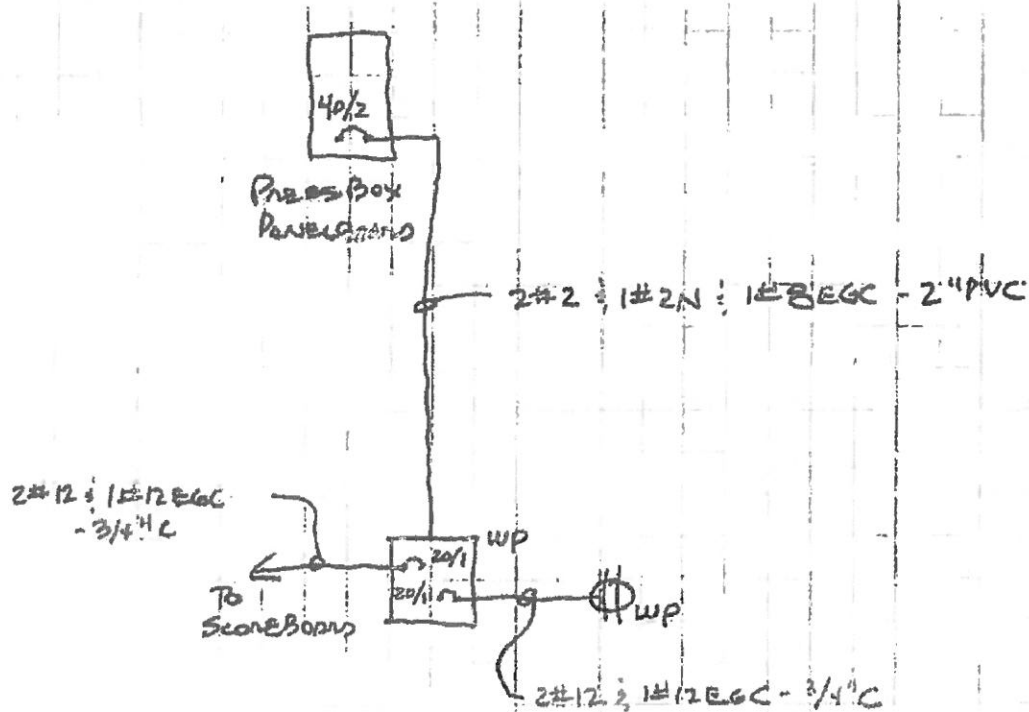 40/2
Press Box
Panelboard
2#2 & 1#2N & 1#8EGC - 2"PVC
2#12 & 1#12EGC
- 3/4"C
WP
20/1
20/1
To
ScoreBoard
WP
2#12 & 1#12EGC - 3/4"C